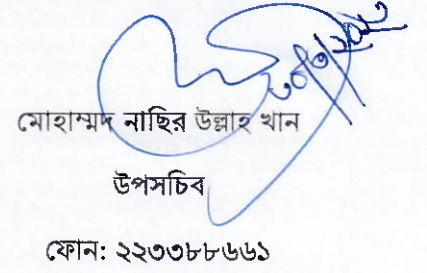 মোহাম্মদ নাছির উল্লাহ খান
উপসচিব
ফোন: ২২৩৩৮৮৬৬১